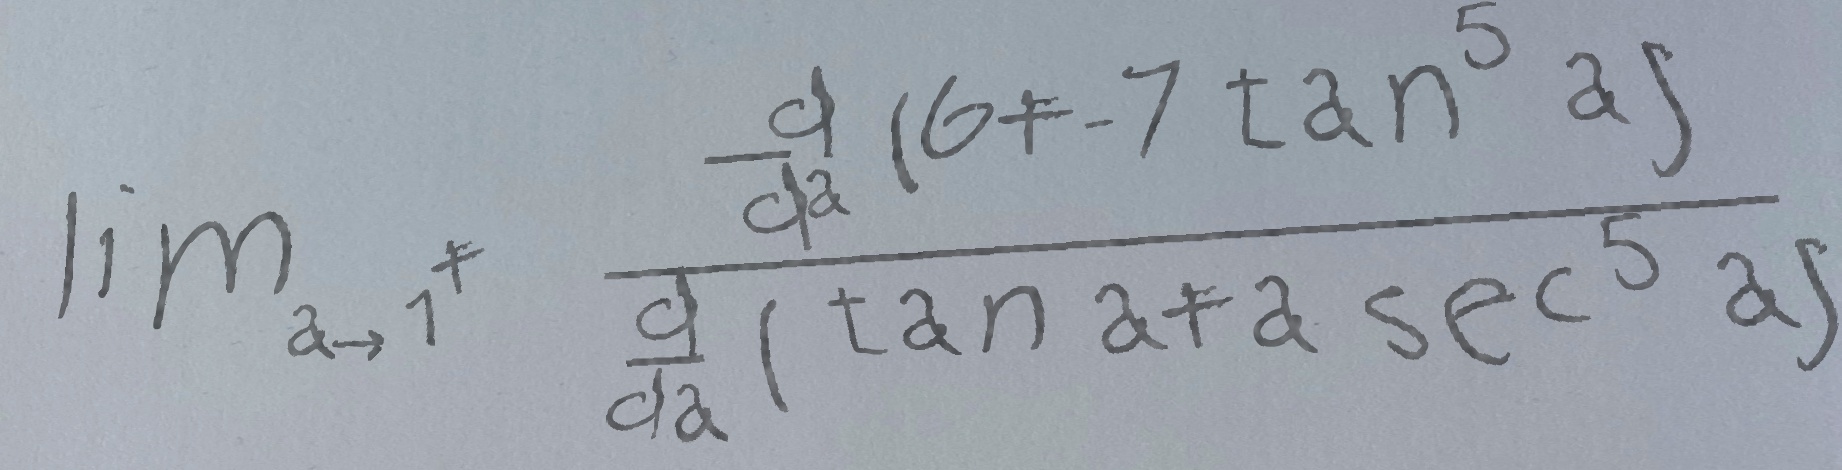 \lim_{a \to 1^+} \frac{\frac{d}{da}(6+-7\tan^5 a)}{\frac{d}{da}(\tan a+a\sec^5 a)}